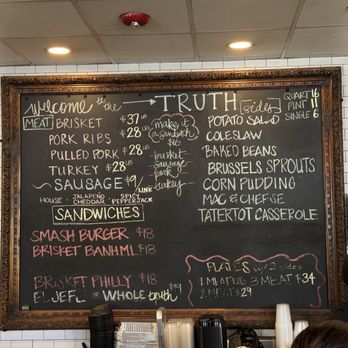 Welcome to the → TRUTH
MEAT BRISKET $37 LB
PORK RIBS $28 LB
PULLED PORK $28 LB
TURKEY $28 LB
SAUSAGE $9/LINK
HOUSE JALAPEÑO CHEDDAR SPICY PEPPERJACK
make it a sandwich $16
brisket
sausage
pork
turkey
SANDWICHES
SMASH BURGER $18
BRISKET BANH MI $18
BRISKET PHILLY $18
EL JEFE OR WHOLE truth $19
sides QUART 16
PINT 11
SINGLE 6
POTATO SALAD
COLESLAW
BAKED BEANS
BRUSSELS SPROUTS
CORN PUDDING
MAC & CHEESE
TATERTOT CASSEROLE
PLATES w/ 2 sides
1 MEAT 3 MEAT $34
2 MEAT $29